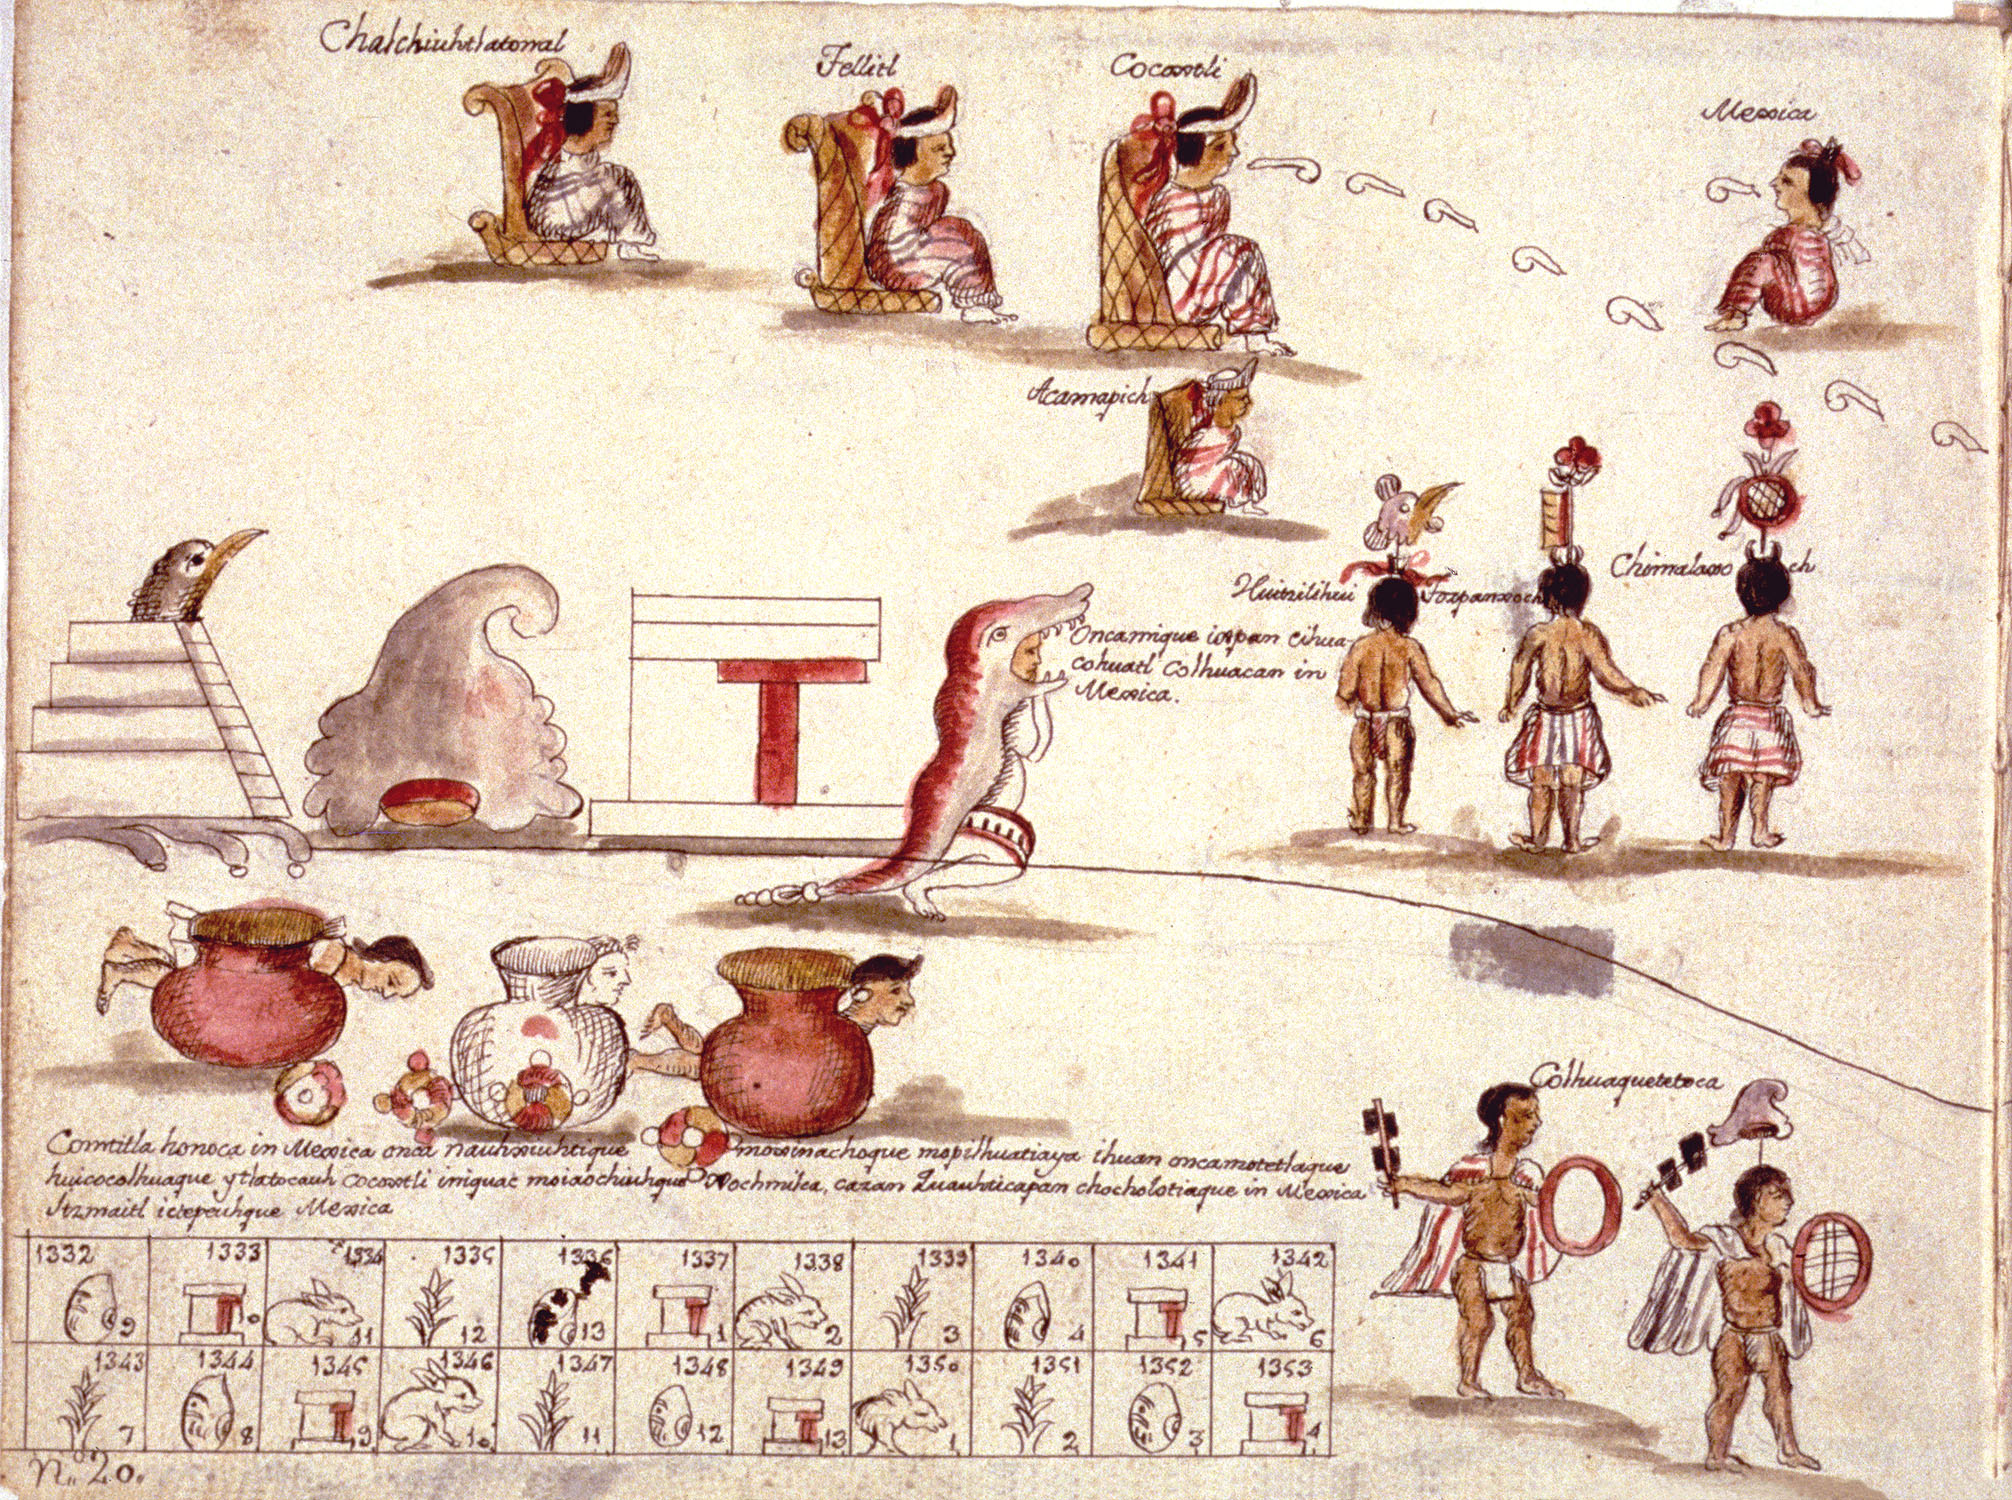 Chalchiuhtlatonal
Tellitl
Cocoxtli
Mexica
Acamapich
Huitzilihui
Toxpanxoch
Chimalaxo ch
Oncamique iixpan cihua-
cohuatl Colhuacan in
Mexica.
Colhuaquetetoca
Contitla honoca in Mexica onca nauhxiuhtique
huicocolhuaque ytlatocauh cocoxtli iniquac moiaochiuhque
Itzmaitl ictepeuhque Mexica
moxinachoque mopilhuatiaya ihuan oncamotetlaque
Xochmilca, cazan Quauhticapan chocholotiaque in Mexica
1332 1333 1334 1335 1336 1337 1338 1339 1340 1341 1342
9 10 11 12 13 1 2 3 4 5 6
1343 1344 1345 1346 1347 1348 1349 1350 1351 1352 1353
7 8 9 10 11 12 13 1 2 3 4
N.º 20.